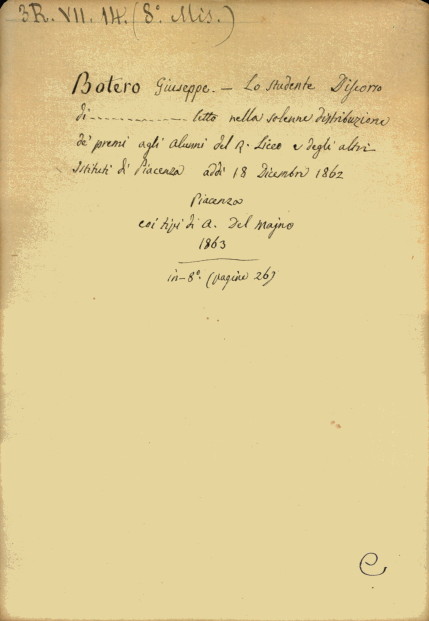 3R. VII. 14. (8°. Mis.)
Botero Giuseppe. — Lo studente Discorso
di ------------ letto nella solenne distribuzione
de' premi agli alunni del R. Liceo e degli altri
Istituti di Piacenza addì 18 Dicembre 1862
Piacenza
coi tipi di A. Del Majno
1863
in-8°. (pagine 26)
e